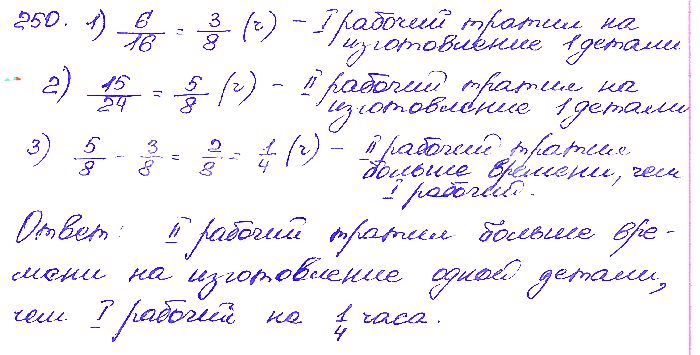 250. 1) 6/16 = 3/8 (ч) - I рабочий тратил на
изготовление 1 детали
2) 15/24 = 5/8 (ч) - II рабочий тратил на
изготовление 1 детали
3) 5/8 - 3/8 = 2/8 = 1/4 (ч) - II рабочий тратил
больше времени, чем
I рабочий.
Ответ: II рабочий тратил больше вре-
мени на изготовление одной детали,
чем I рабочий на 1/4 часа.